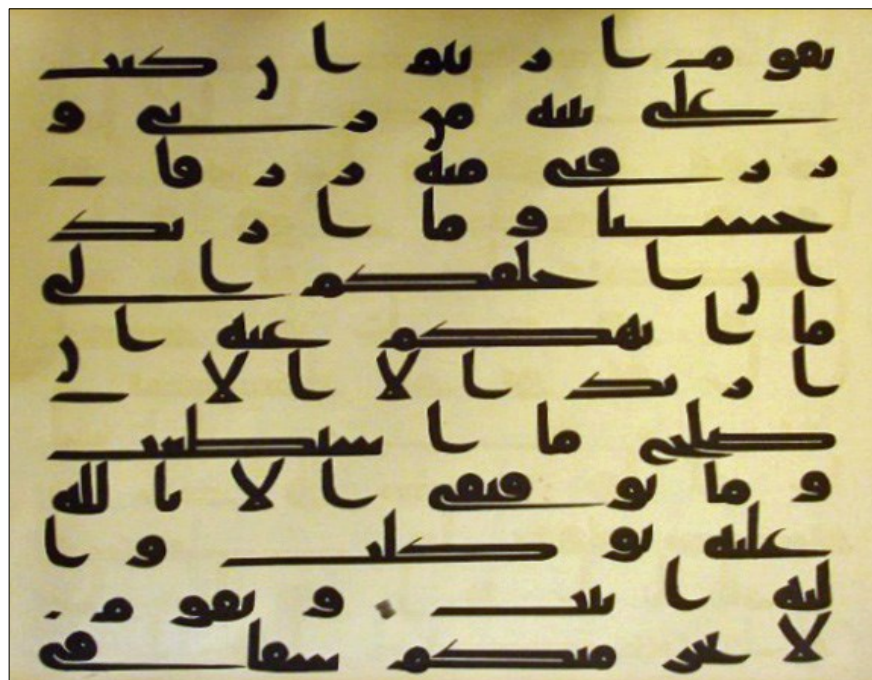 يقوم اريتم ان كنت
على بينه من ربى و
رزقنى منه رزقا
حسنا وما اريد
ان اخلفكم الى
ما انهيكم عنه ان
اريد الا الا
صلح ما استطعت
وما توفيقى الا بالله
عليه توكلت وا
ليه انيب ويقوم
لا يجرمنكم شقاقى